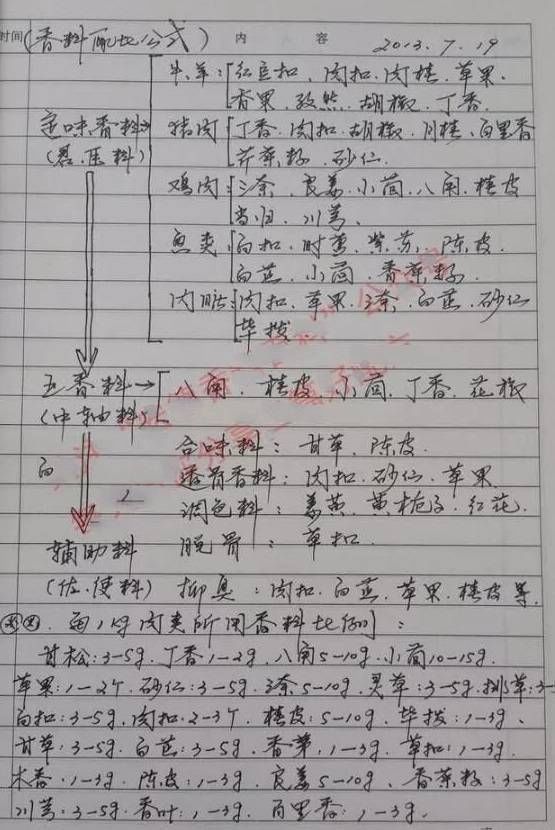 时间(香料配比公式) 内 容 2013.7.19
牛、羊:红豆扣、肉扣、肉桂、草果、
香果、孜然、胡椒、丁香.
定味香料→ 猪肉 丁香、肉扣、胡椒、月桂、百里香
(君、臣料) 芹菜籽、砂仁.
鸡肉:三奈、良姜、小茴、八角、桂皮
当归、川芎、
鱼类 白扣、时萝、紫苏、陈皮、
白芷、小茴、香菜籽.
内脏 肉扣、草果、三奈、白芷、砂仁
毕拨
五香料→ 八角、桂皮、小茴、丁香、花椒
(中轴料)
合味料:甘草、陈皮.
透骨香料:肉扣、砂仁、草果.
调色料:姜黄、黄栀子、红花.
辅助料 脱骨:草扣.
(佐、使料) 抑臭:肉扣、白芷、草果、桂皮等.
每1kg肉类所用香料比例:
甘松:3-5g、丁香1-2g、八角5-10g、小茴10-15g.
草果:1-2个、砂仁:3-5g、三奈5-10g、灵草:3-5g、排草:3-
白扣:3-5g、肉扣:2-3个、桂皮:5-10g、毕拨:1-3g、
甘草:3-5g、白芷:3-5g、香茅:1-3g、草扣:1-3g.
木香:1-3g、陈皮:1-3g、良姜5-10g、香菜籽:3-5g
川芎:3-5g、香叶:1-3g、百里香:1-3g.